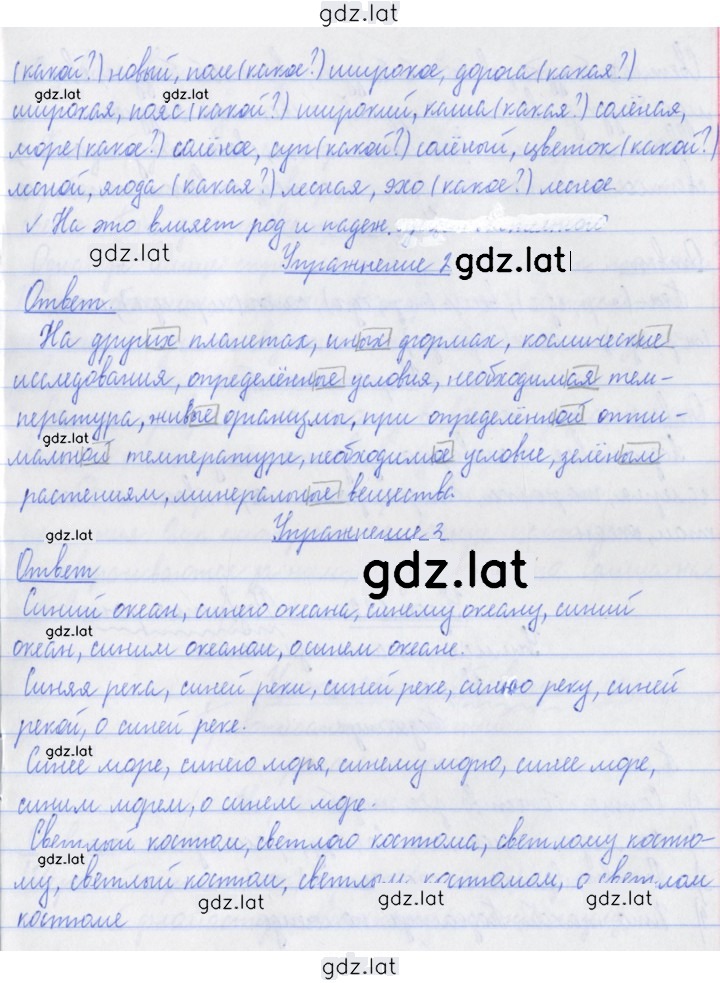 gdz.lat
(какой?) новый, поле (какое?) широкое, дорога (какая?)
gdz.lat gdz.lat
широкая, пояс (какой?) широкий, каша (какая?) солёная,
море (какое?) солёное, суп (какой?) солёный, цветок (какой?)
лесной, ягода (какая?) лесная, эхо (какое?) лесное
✓ На это влияет род и падеж.
gdz.lat
Упражнение 2 gdz.lat
Ответ.
На других планетах, иных формах, космические
исследования, определённые условия, необходимая тем-
пература, живые организмы, при определённой опти-
gdz.lat
мальной температуре, необходимое условие, зелёным
растениям, минеральные вещества.
gdz.lat
Упражнение 3
Ответ
gdz.lat
Синий океан, синего океана, синему океану, синий
gdz.lat
океан, синим океаном, о синем океане.
Синяя река, синей реки, синей реке, синюю реку, синей
рекой, о синей реке.
gdz.lat
Синее море, синего моря, синему морю, синее море,
синим морем, о синем море.
Светлый костюм, светлого костюма, светлому костю-
gdz.lat
му, светлый костюм, светлым костюмом, о светлом
gdz.lat gdz.lat gdz.lat
костюме
gdz.lat